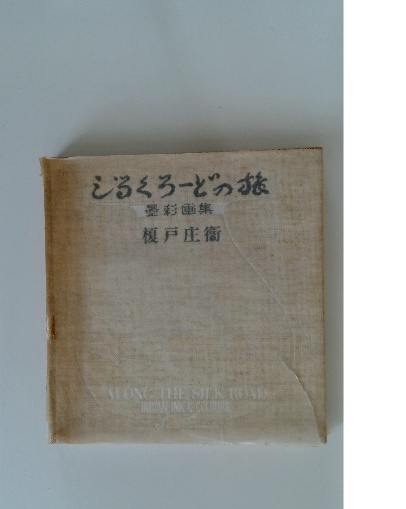 しるくろーどの旅
墨彩画集
榎戸庄衛
ALONG THE SILK ROAD
INDIAN INK & COLOURS